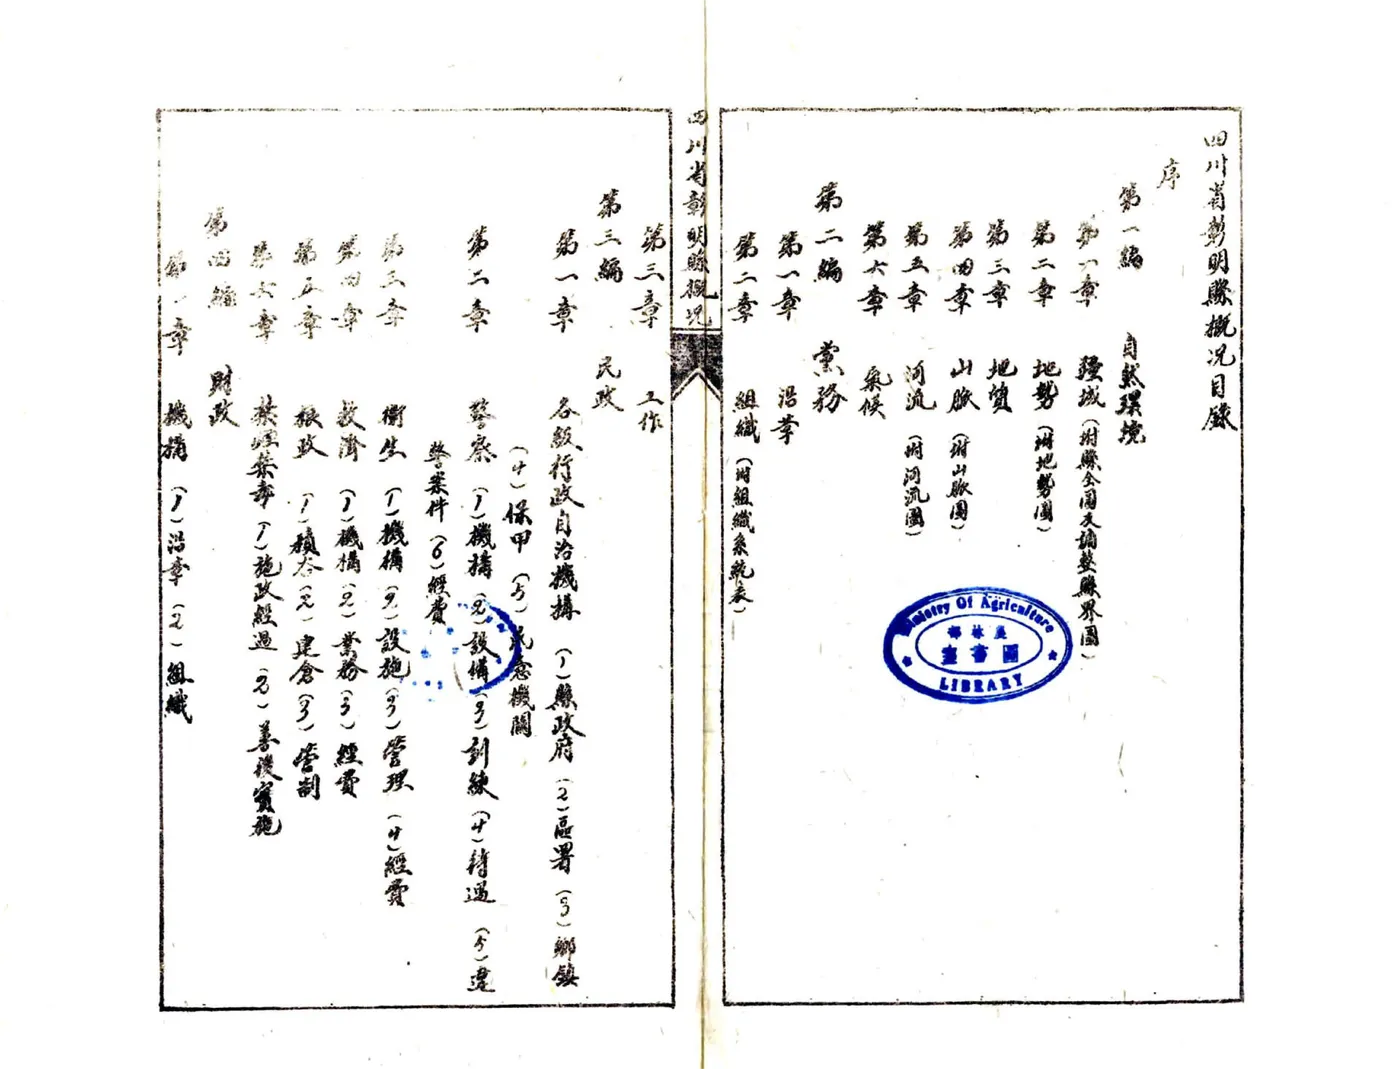 四川省彰明縣概況目錄
序
第一編 自然環境
第一章 疆域(附縣全圖及調整縣界圖)
第二章 地勢(附地勢圖)
第三章 地質
第四章 山脈(附山脈圖)
第五章 河流(附河流圖)
第六章 氣候
第二編 黨務
第一章 沿革
第二章 組織(附組織系統表)
Ministry Of Agriculture
農林部
圖書室
LIBRARY
四川省彰明縣概況
第三章 工作
第三編 民政
第一章 各級行政自治機構 (1)縣政府(2)區署(3)鄉鎮
(4)保甲(5)民意機關
第二章 警察(1)機構(2)設備(3)訓練(4)待遇(5)違
警案件(6)經費
第三章 衛生(1)機構(2)設施(3)管理(4)經費
第四章 救濟(1)機構(2)業務(3)經費
第五章 糧政(1)積谷(2)建倉(3)管制
第六章 禁煙禁毒(1)施政經過(2)善後實施
第四編 財政
第一章 機構(1)沿革(2)組織